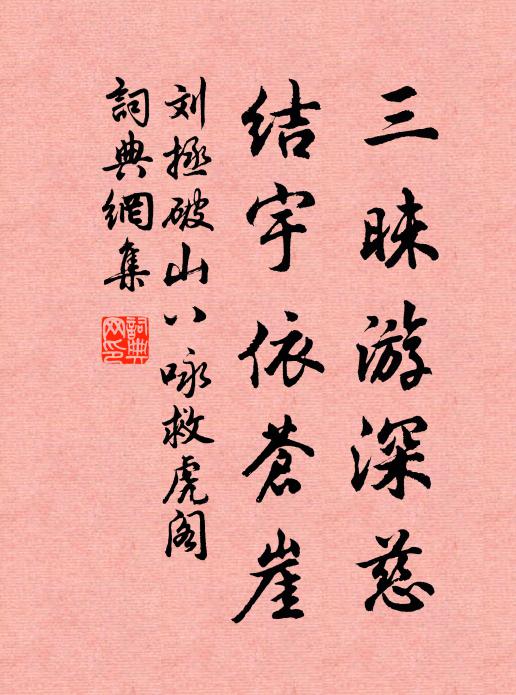 三昧游深慈
结宇依苍崖
刘拯破山八咏救虎阁
词典网集
词典网印